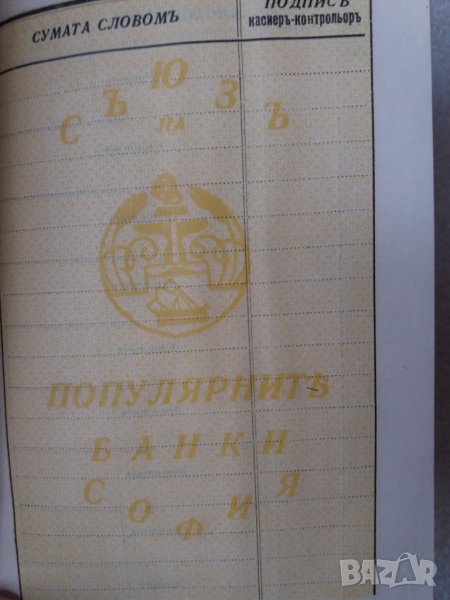 СУМАТА СЛОВОМЪ
ПОДПИСЪ
касиеръ-контрольоръ
СЪЮЗЪ
НА
ПОПУЛЯРНИТѢ
БАНКИ
СОФИЯ
BAZAR
.bg